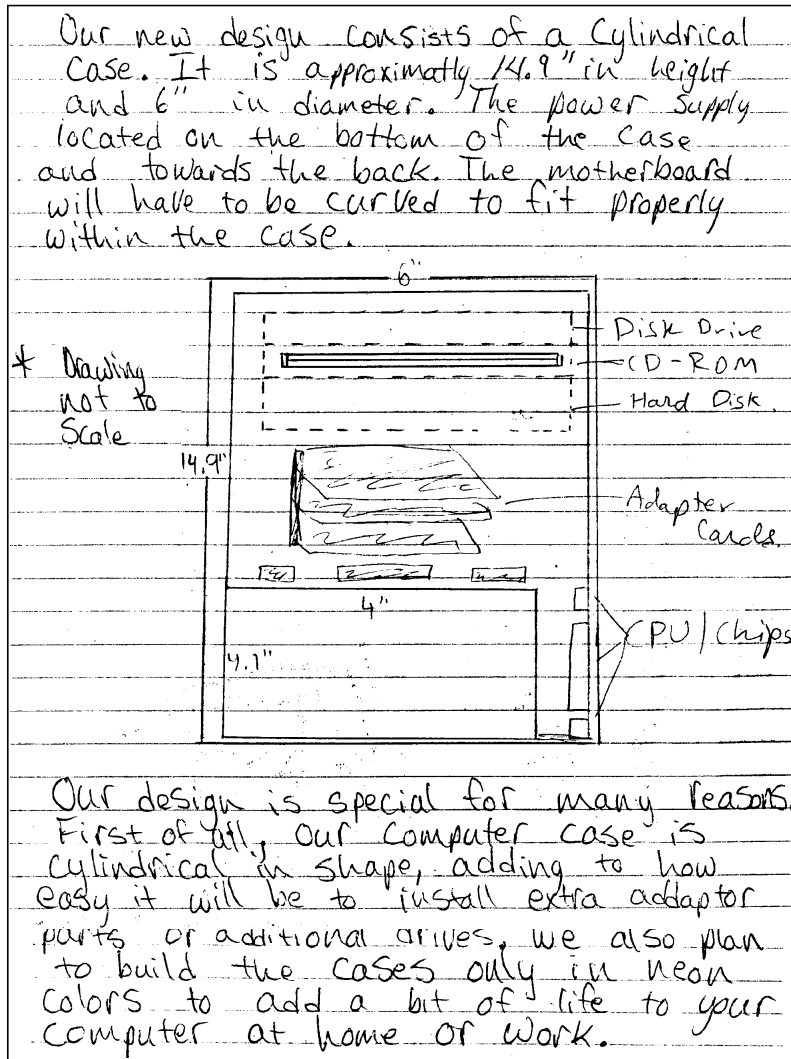 Our new design consists of a Cylindrical
Case. It is approximatly 14.9" in height
and 6" in diameter. The power supply
located on the bottom of the case
and towards the back. The motherboard
will have to be curved to fit properly
within the case.
6"
Disk Drive
* Drawing
not to
Scale
CD-ROM
Hard Disk.
14.9"
Adapter
Cards.
4"
CPU/Chips
4.1"
Our design is special for many reasons.
First of all, our computer case is
cylindrical in shape, adding to how
easy it will be to install extra addaptor
parts or additional drives, we also plan
to build the cases only in neon
colors to add a bit of life to your
computer at home or work.